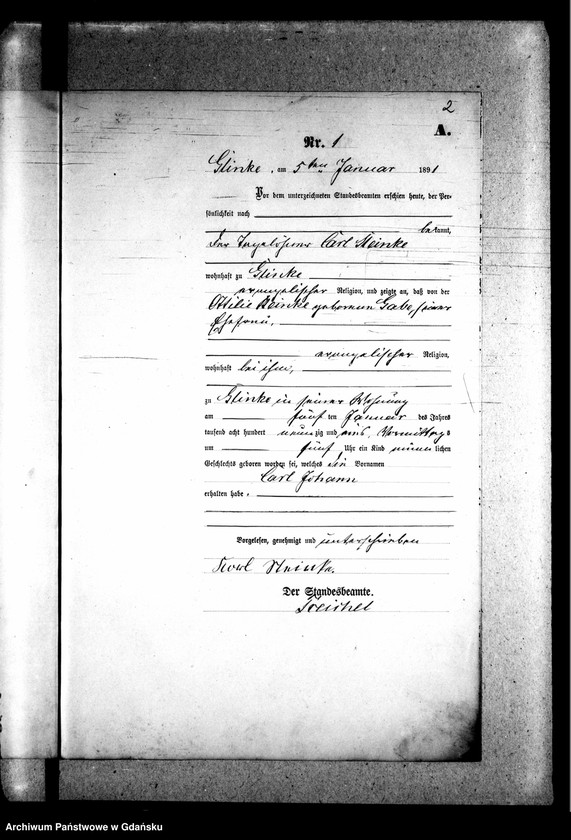 2
A.
Nr. 1
Glinke, am 5ten Januar 1891
Vor dem unterzeichneten Standesbeamten erschien heute, der Per-
sönlichkeit nach
bekannt,
der Tagelöhner Carl Steinke
wohnhaft zu Glinke
evangelischer Religion, und zeigte an, daß von der
Ottilie Steinke geborenen Gabe, seiner
Ehefrau,
evangelischer Religion,
wohnhaft bei ihm,
zu Glinke in seiner Wohnung
am fünf ten Januar des Jahres
tausend acht hundert neunzig und eins, Vormittags
um fünf Uhr ein Kind männlichen
Geschlechts geboren worden sei, welches die Vornamen
Carl Johann
erhalten habe.
Vorgelesen, genehmigt und unterschrieben
Karl Steinke.
Der Standesbeamte.
Treichel
Archiwum Państwowe w Gdańsku